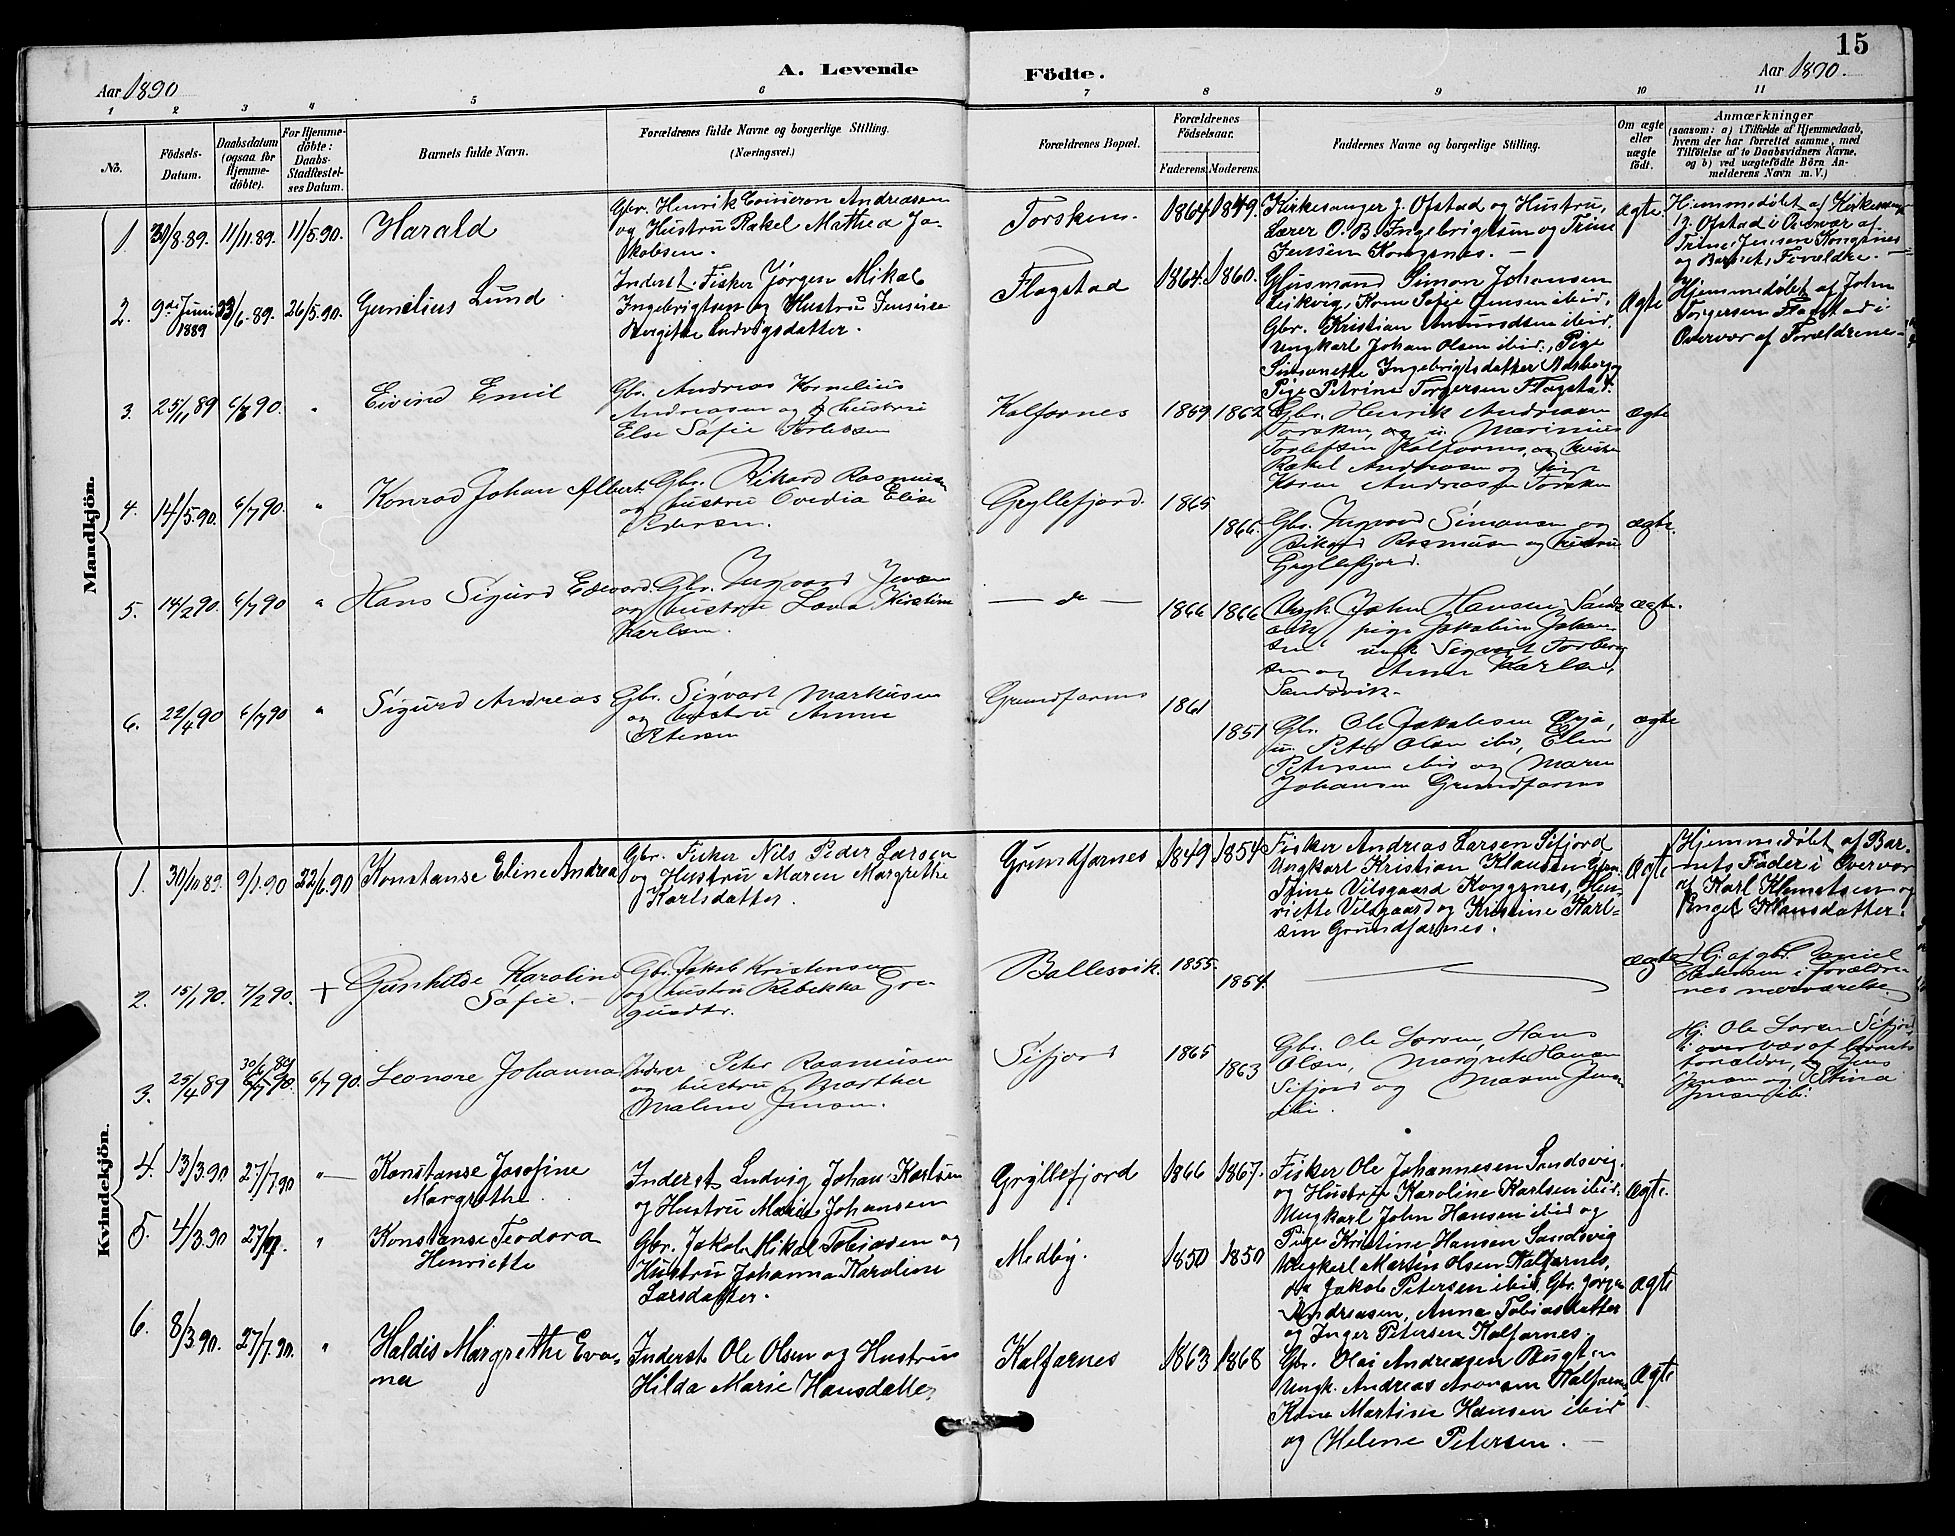 15
A. Levende Födte.
Aar 1890
Aar 1890.
1 2 3 4 5 6 7 8 9 10 11
No.
Födsels-Datum.
Daabsdatum (ogsaa for Hjemmedöbte).
For Hjemmedöbte: Daabs-Stadfæstelses Datum.
Barnets fulde Navn.
Forældrenes fulde Navne og borgerlige Stilling.
(Næringsvei.)
Forældrenes Bopæl.
Forældrenes Födselsaar.
Faderens. Moderens.
Faddernes Navne og borgerlige Stilling.
Om ægte eller uægte födt.
Anmærkninger
(saasom: a) i Tilfælde af Hjemmedaab, hvem der har forrettet samme, med Tilföielse af to Daabsvidners Navne, og b) ved uægtefödte Börn Anmelderens Navn m. V.)
Mandkjön.
1. 31/8.89. 11/11.89. 11/5.90. Harald
Gbr. Henrik Andreasen
og Hustru Rakel Mathea Ja-
kobsen.
Torsken. 1864 1849.
Kirkesanger J. Ofstad og Hustru,
Lærer O. B. Ingebrigtsen og Trine
Jensen Kongsnes. —
ægte.
Hjemmedøbt af Kirkesanger
J. Ofstad i Overvær af
Trine Jensen Kongsnes
og Barnets Forældre. —
2. 9de Juni 1889 23/6.89. 26/5.90. Gunelius Lund
Inderst. Fisker Jørgen Mikal
Ingebrigtsen og Hustru Jensine
Bergitte Ludvigsdatter.
Flagstad 1864. 1860.
Husmand Simon Johansen
Leikvig, Kone Sofie Jensen ibid,
Gbr. Kristian Amundsen ibid.
Ungkarl Johan Olsen ibid., Pige
Simonette Ingebrigtsdatter og
Pige Petrine Torgersen Flagstad.
Ægte
Hjemmedøbt af John
Torgersen Flagstad i
Overvær af Forældrene
3. 25/11 89 6/7 90. " Eivind Emil
Gbr. Andreas Kornelius
Andreasen og hustru
Else Sofie Torlefsen
Kalfarnes 1869 1862
Gbr. Henrik Andreasen
Torsken, og u. Marinius
Torlefsen Kalfarnes, og hustru
Rakel Andreasen og pige
Karen Andreasen Torsken
ægte
4. 14/5.90. 6/7 90. " Konrad Johan Albert.
Gbr. Rikard Rasmusen
og hustru Ovedia Elise
Pedersen.
Gryllefjord. 1865 1866.
Gbr. Ingvard Simonsen og
Rikard Rasmusen og hustru
Gryllefjord.
ægte.
5. 14/2 90. 6/7 90 " Hans Sigurd Edevard.
Gbr. Ingvard Jensen
og hustru Lova Kirstine
Karlsen.
— do — 1866 1866
Ungk. John Hansen Sands-
vik pige Jakobine Johan-
sen ungk Sigvart Torberg-
sen og Anne Karlsen,
Sandsvik.
ægte.
6. 22/4 90 6/7 90 " Sigurd Andreas
Gbr. Sigvart Markusen
og hustru Anne
Petersen
Grundfarnes 1861 1851
Gbr. Ole Jakobsen
u. Peter Olsen ibid, Elen
Petersen ibid og Maren
Johansen Grundfarnes
ægte
Kvindekjön.
1. 30/10 89. 9/1.90 22/6.90 Konstanse Eline Andrea
Gbr. Fisker Nils Peder Larsen
og Hustru Maren Margrethe
Karlsdatter.
Grundfarnes 1849 1854
Fisker Andreas Larsen Sifjord
Ungkarl Kristian Klausen Grun.
Trine Vilsgaard Kongsnes, Hen-
riette Vilsgaard og Kristine Karl-
sen Grundfarnes.
Ægte
Hjemmedøbt af Bar-
nets Fader i Overvær
af Karl Klemetsen og
Engel Klausdatter.
2. 15/1 90. 7/2 90. + Gunhilde Karoline
Sofie. —
Gbr. Jakob Kristensen
og hustru Rebekka Gre-
gusdtr.
Ballesvik. 1855. 1854.
ægte
Hj. af gbr. Daniel
Pedersen i foreldre-
nes nærværelse.
3. 25/4 89 30/6 89 6/7 90. 6/7 90. Leonore Johanna
Inderst. Peter Rasmusen
og hustru Martha
Malene Jensen.
Sifjord 1865 1863
Gbr. Ole Larsen, Hans
Olsen, Margrete Hansen
Sifjord og Maren Jensen
ibi.
Hj. Ole Larsen Sifjord
i overvær af barnets
forældre, og Jens
Jensen og Stina
Jensen ibi.
4. 13/3.90 27/7.90 "— Konstanse Josefine
Margrethe.
Inderst Ludvig Johan Karlsen
og Hustru Marie Johansen
Gryllefjord 1866 1867.
Fisker Ole Johannesen Sandsvig.
og Hustru Karoline Karlsen ibid.
Ungkarl John Hansen ibid og
Pige Kristine Hansen Sandsvig
Ægte.
5. 4/3.90 27/7. " Konstanse Teodora
Henriette
Gbr. Jakob Mikal Tobiasen og
Hustru Johanna Karoline
Larsdatter.
Medby. 1850 1850
Ungkarl Martin Olsen Kalfarnes,
do Jakob Petersen ibid, Gbr. Jørgen
Andreasen, Anna Tobiasdatter
og Inger Petersen Kalfarnes,
Ægte
6. 8/3 90. 27/7.90. " Haldis Margrethe Eva-
na
Inderst Ole Olsen og Hustru
Hilda Marie Hansdatter
Kalfarnes 1863 1868
Gbr. Olai Andreasen Bugten
Ungk. Andreas Aronsen Kalfarnes
Kone Martine Hansen ibid
og Helene Petersen. —
Ægte